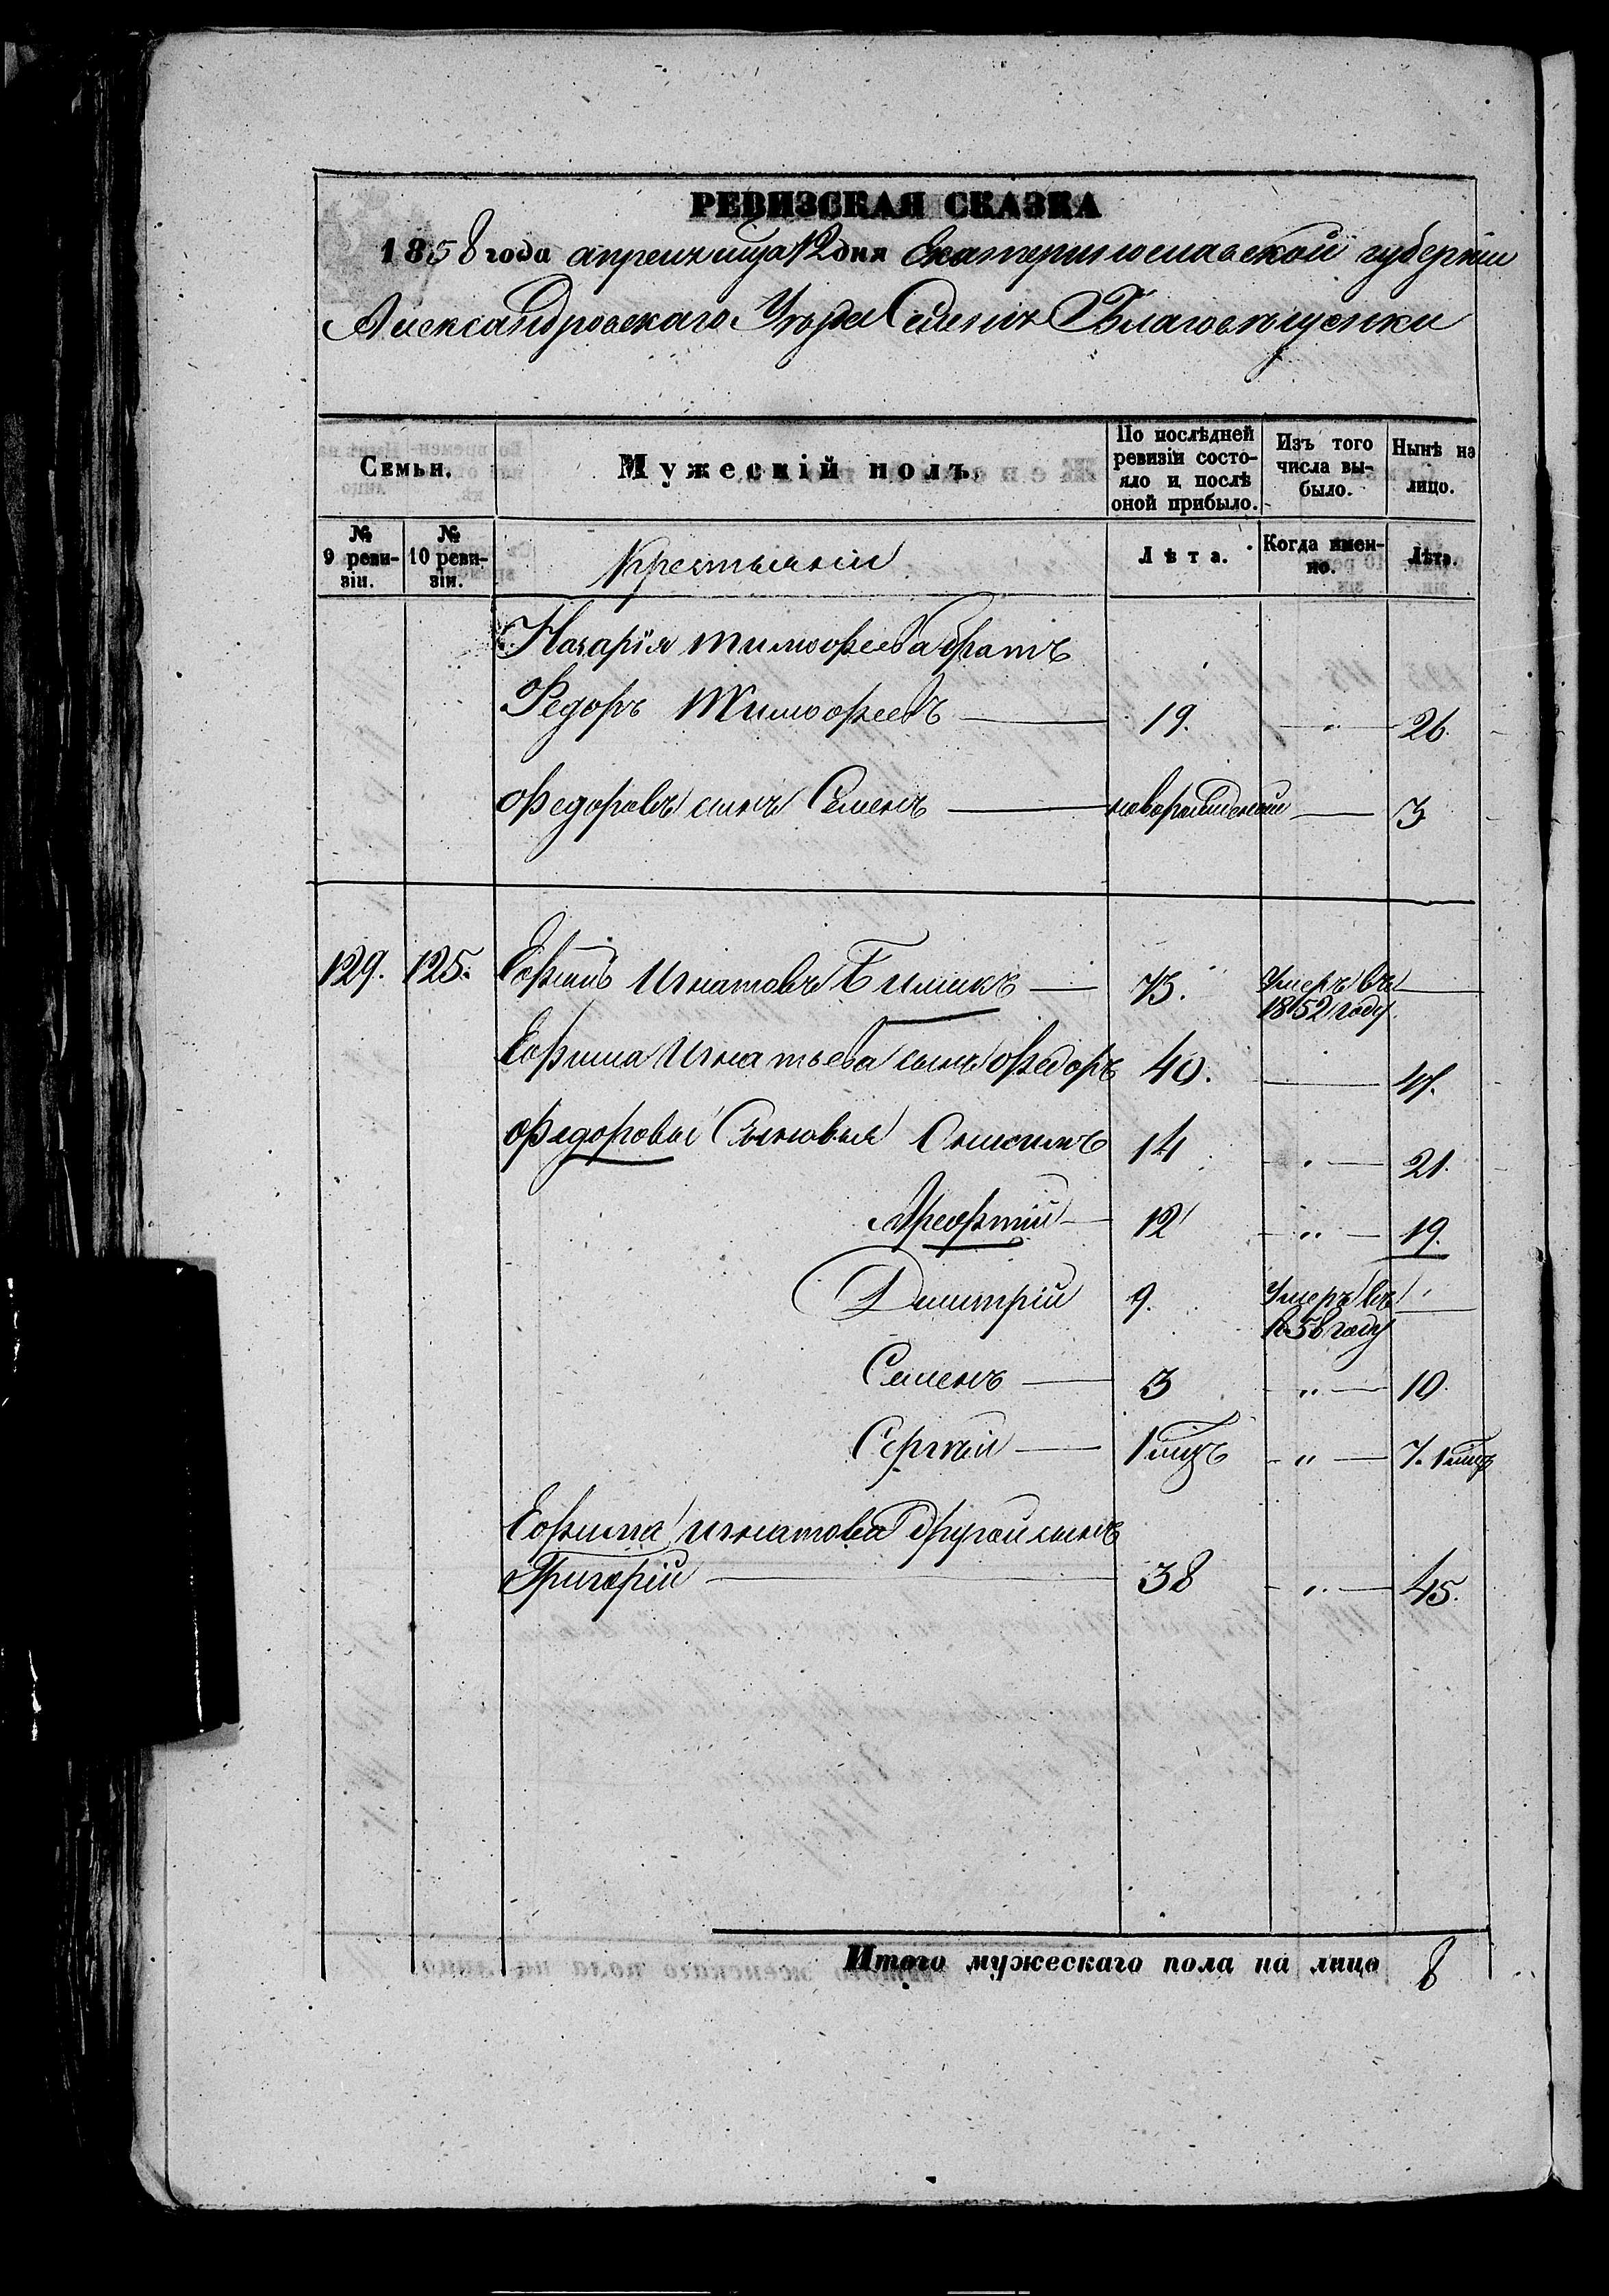 РЕВИЗСКАЯ СКАЗКА
1858 года апреля мца 12 дня Екатеринославской губерніи
Александровскаго Уѣзда Селенія Благовѣщенки
Семьи.
Мужескій полъ.
По послѣдней ревизіи состояло и послѣ оной прибыло.
Изъ того числа выбыло.
Нынѣ на лицо.
№ 9 ревизіи.
№ 10 ревизіи.
Крестьяніи
Лѣта.
Когда именно.
Лѣта.
Назарія Тимофеева братъ
Федоръ Тимофеевъ — 19. " — 26.
Федоровъ сынъ Семенъ — новорожденный — 3
129. 125. Ефимъ Игнатовъ Бимикъ — 75. Умеръ въ 1852 году —
Ефима Игнатьева сынъ Федоръ 40. — 47.
Федоровы Сыновья 14 " — 21.
12 " — 19.
Димитрій 9. Умеръ въ 1856 году —
Семенъ — 3 " — 10.
Сергѣй — 1 мцъ " — 7. 1 мцъ
Ефима Игнатова другой сынъ
Григорій — 38 " — 45.
Итого мужескаго пола на лицо 8